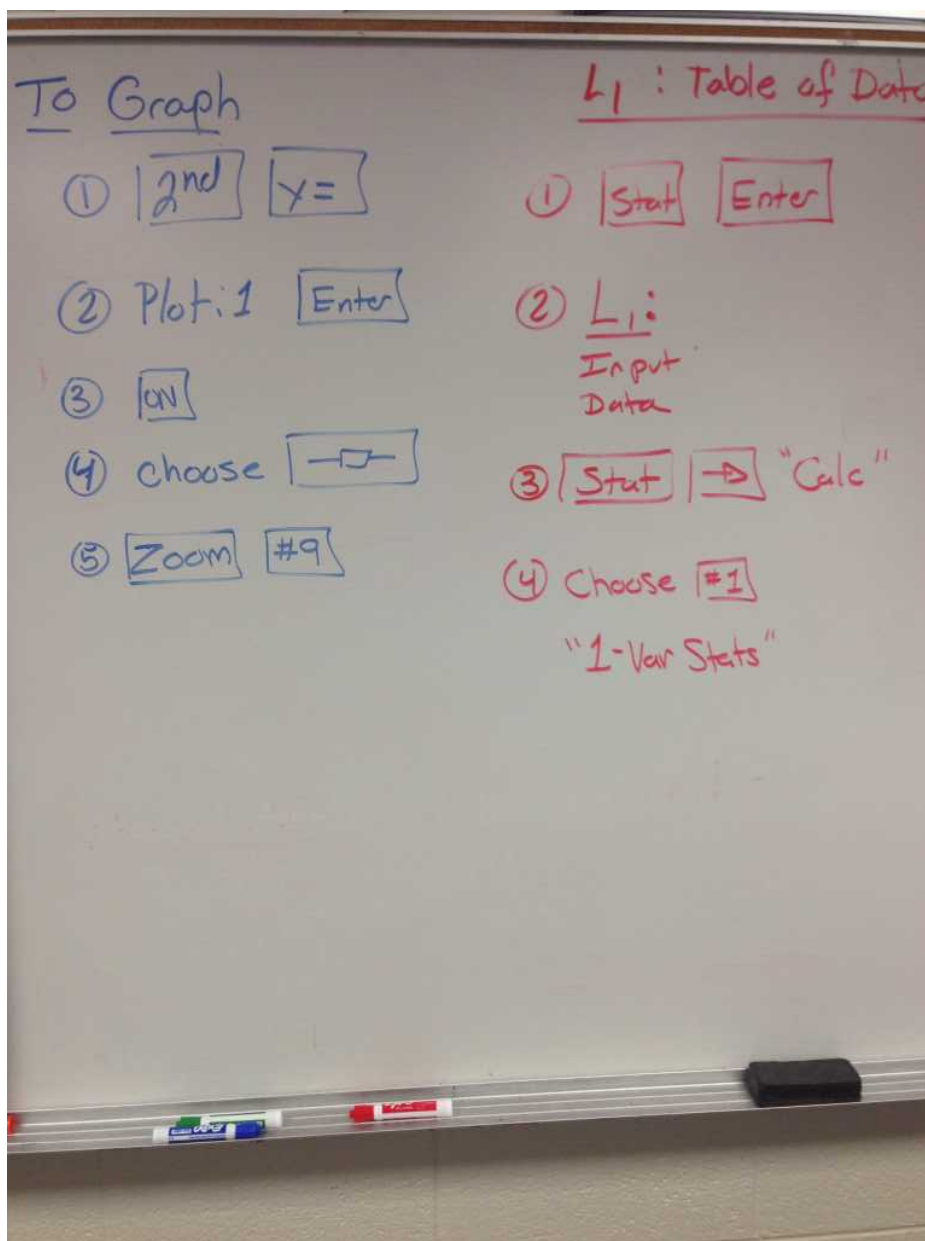 To Graph
① 2nd Y=
② Plot:1 Enter
③ ON
④ choose
⑤ Zoom #9
L1 : Table of Data
① Stat Enter
② L1:
Input
Data
③ Stat → "Calc"
④ Choose #1
"1-Var Stats"